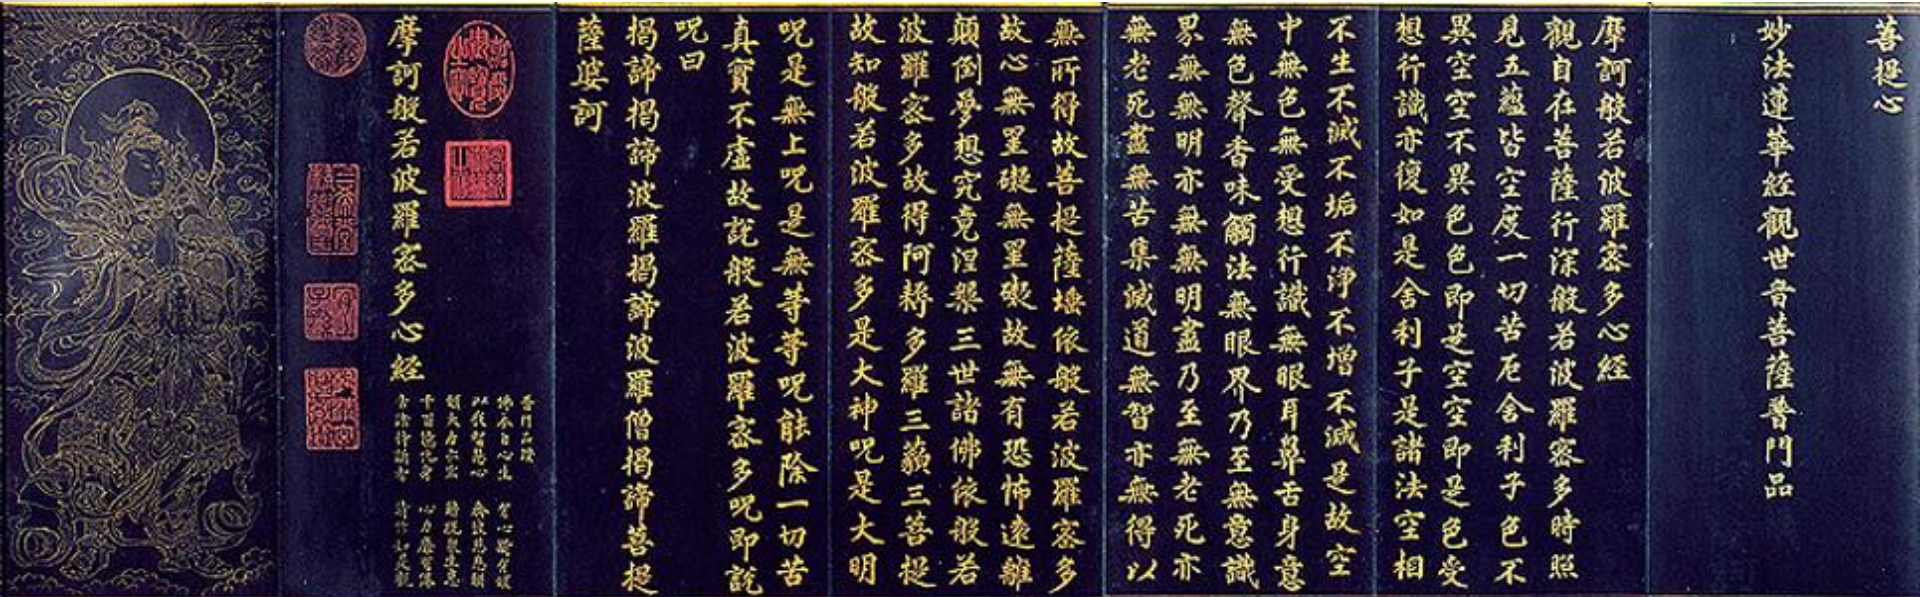 菩提心
妙法蓮華經觀世音菩薩普門品
摩訶般若波羅蜜多心經
觀自在菩薩行深般若波羅蜜多時照
見五蘊皆空度一切苦厄舍利子色不
異空空不異色色即是空空即是色受
想行識亦復如是舍利子是諸法空相
不生不滅不垢不淨不增不減是故空
中無色無受想行識無眼耳鼻舌身意
無色聲香味觸法無眼界乃至無意識
界無無明亦無無明盡乃至無老死亦
無老死盡無苦集滅道無智亦無得以
無所得故菩提薩埵依般若波羅蜜多
故心無罣礙無罣礙故無有恐怖遠離
顛倒夢想究竟涅槃三世諸佛依般若
波羅蜜多故得阿耨多羅三藐三菩提
故知般若波羅蜜多是大神呪是大明
呪是無上呪是無等等呪能除一切苦
真實不虛故說般若波羅蜜多呪即說
呪曰
揭諦揭諦波羅揭諦波羅僧揭諦菩提
薩婆訶
摩訶般若波羅蜜多心經